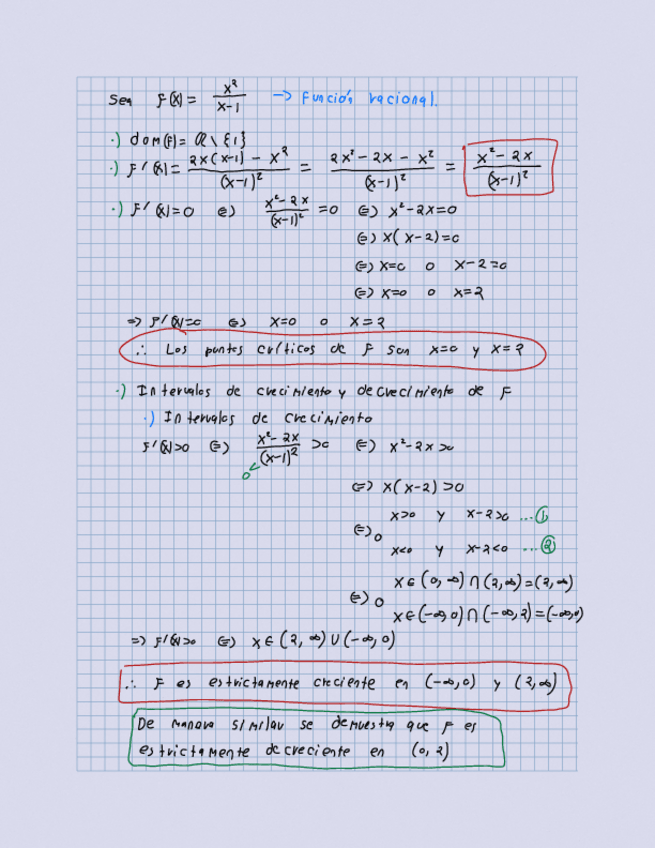 Sea F(x) = x²/(x-1) → Función racional.
·) dom(F) = ℝ \ {1}
·) F'(x) = (2x(x-1) - x²)/(x-1)² = (2x² - 2x - x²)/(x-1)² = (x² - 2x)/(x-1)²
·) F'(x) = 0 ⇔ (x² - 2x)/(x-1)² = 0 ⇔ x² - 2x = 0
⇔ x(x-2) = 0
⇔ x=0 o x-2=0
⇔ x=0 o x=2
⇒ F'(x)=0 ⇔ x=0 o x=2
∴ Los puntos críticos de F son x=0 y x=2
·) Intervalos de crecimiento y decrecimiento de F
·) Intervalos de crecimiento
F'(x)>0 ⇔ (x² - 2x)/(x-1)² >0 ⇔ x² - 2x >0
0
⇔ x(x-2) >0
x>0 y x-2>0 ...①
⇔ o
x<0 y x-2<0 ...②
x ∈ (0, ∞) ∩ (2, ∞) = (2, ∞)
⇔ o
x ∈ (-∞, 0) ∩ (-∞, 2) = (-∞, 0)
⇒ F'(x)>0 ⇔ x ∈ (2, ∞) ∪ (-∞, 0)
∴ F es estrictamente creciente en (-∞, 0) y (2, ∞)
De manera similar se demuestra que F es
estrictamente decreciente en (0, 2)